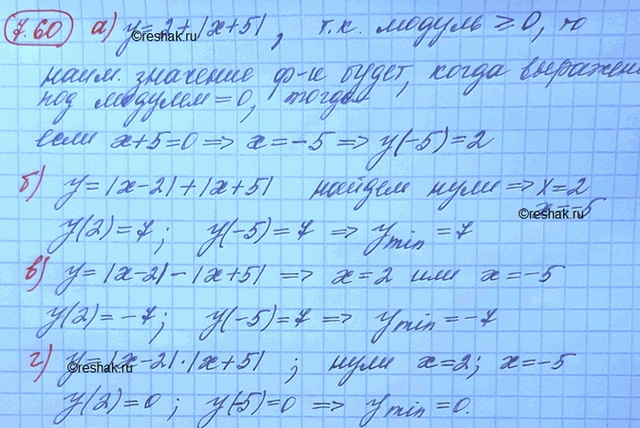 7.60 а) y=2+|x+5|, т.к. модуль ≥ 0, то
©reshak.ru
наим. значение ф-и будет, когда выражен
под модулем =0, тогда
если x+5=0 => x=-5 => y(-5)=2
б) y=|x-2|+|x+5| найдем нули => x=2
x=-5
©reshak.ru
y(2)=7; y(-5)=7 => y min =7
в) y=|x-2|-|x+5| => x=2 или x=-5
y(2)=-7; y(-5)=7 => y min =-7
г) y=|x-2|·|x+5| ; нули x=2; x=-5
©reshak.ru
y(2)=0; y(-5)=0 => y min =0.